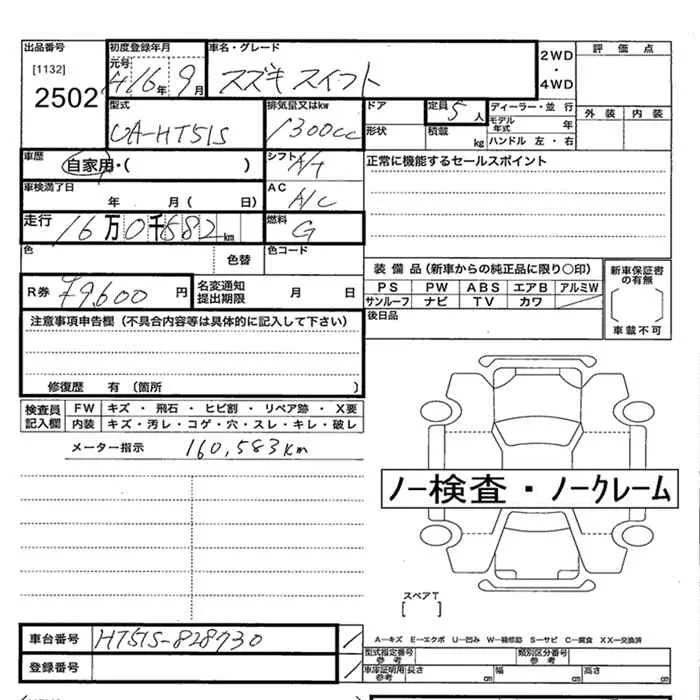 出品番号 初度登録年月 車名・グレード 2WD・4WD 評価点
[1132] 元号 H16年9月 スズキ スイフト
2502
型式 排気量又はkw ドア 定員 5人 ディーラー・並行 外装 内装
UA-HT51S 1300cc 形状 積載 kg モデル年式 年
ハンドル 左・右
車歴 自家用・( ) シフト A/T 正常に機能するセールスポイント
車検満了日 AC
年 月( 日) A/C
走行 16万0千582km 燃料 G
色 色替 色コード
装備品(新車からの純正品に限り○印) 新車保証書の有無
R券 ¥9,600円 名変通知提出期限 月 日 PS PW ABS エアB アルミW
サンルーフ ナビ TV カワ
注意事項申告欄(不具合内容等は具体的に記入して下さい) 後日品 車載不可
修復歴 有(箇所 )
検査員記入欄 FW キズ・飛石・ヒビ割・リペア跡・X要
内装 キズ・汚レ・コゲ・穴・スレ・キレ・破レ
メーター指示 160,583km
ノー検査・ノークレーム
スペアT
[ ]
車台番号 HT51S-828730 A−キズ E−エクボ U−凹み W−補修跡 S−サビ C−腐食 XX−交換済
型式指定番号 参考 類別区分番号 参考
登録番号 車庫証明用 参考 長さ cm 幅 cm 高さ cm